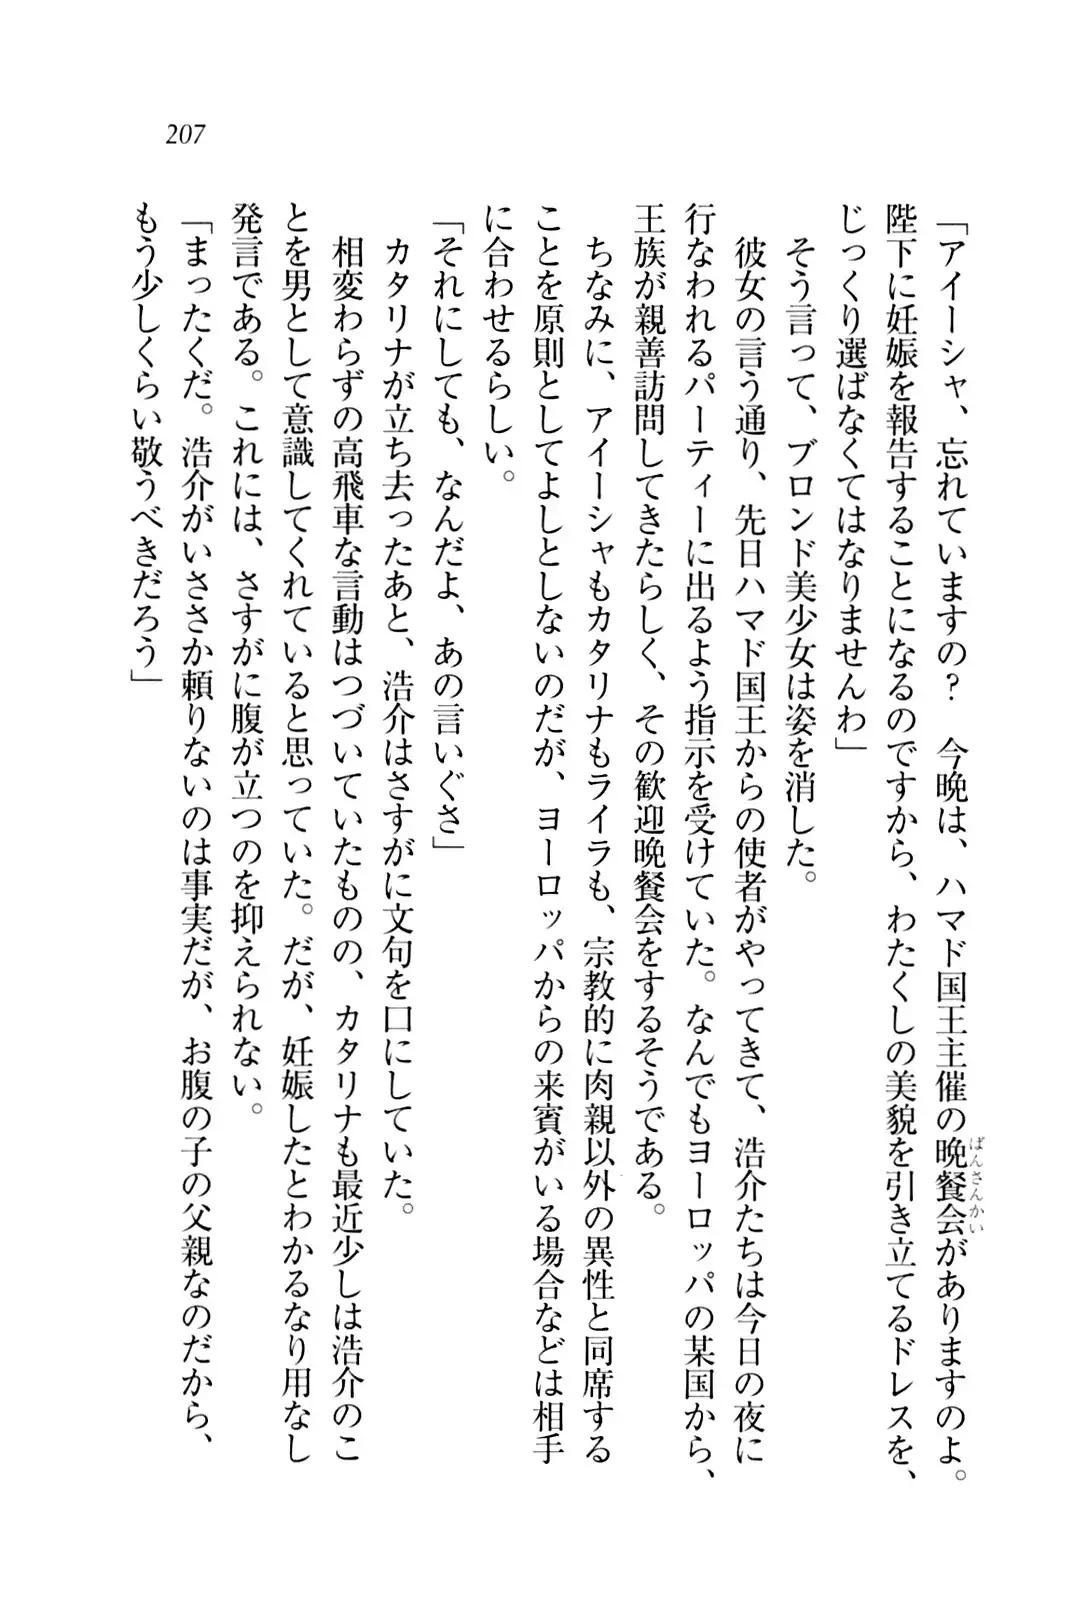 207
「アイーシャ、忘れていますの？　今晩は、ハマド国王主催の晩餐会がありますのよ。
ばんさんかい
陛下に妊娠を報告することになるのですから、わたくしの美貌を引き立てるドレスを、
じっくり選ばなくてはなりませんわ」
そう言って、ブロンド美少女は姿を消した。
彼女の言う通り、先日ハマド国王からの使者がやってきて、浩介たちは今日の夜に
行なわれるパーティーに出るよう指示を受けていた。なんでもヨーロッパの某国から、
王族が親善訪問してきたらしく、その歓迎晩餐会をするそうである。
ちなみに、アイーシャもカタリナもライラも、宗教的に肉親以外の異性と同席する
ことを原則としてよしとしないのだが、ヨーロッパからの来賓がいる場合などは相手
に合わせるらしい。
「それにしても、なんだよ、あの言いぐさ」
カタリナが立ち去ったあと、浩介はさすがに文句を口にしていた。
相変わらずの高飛車な言動はつづいていたものの、カタリナも最近少しは浩介のこ
とを男として意識してくれていると思っていた。だが、妊娠したとわかるなり用なし
発言である。これには、さすがに腹が立つのを抑えられない。
「まったくだ。浩介がいささか頼りないのは事実だが、お腹の子の父親なのだから、
もう少しくらい敬うべきだろう」